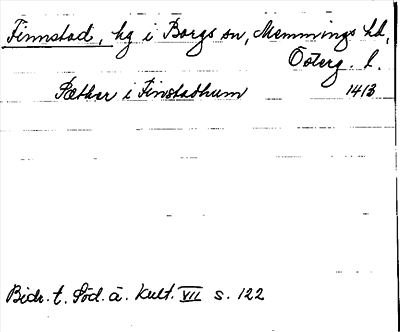 Finnstad, hg i Borgs sn, Memmings hd,
Österg. l.
Pæthar i Finstadhum 1413
Bidr. t. Söd. ä. Kult. VII s. 122